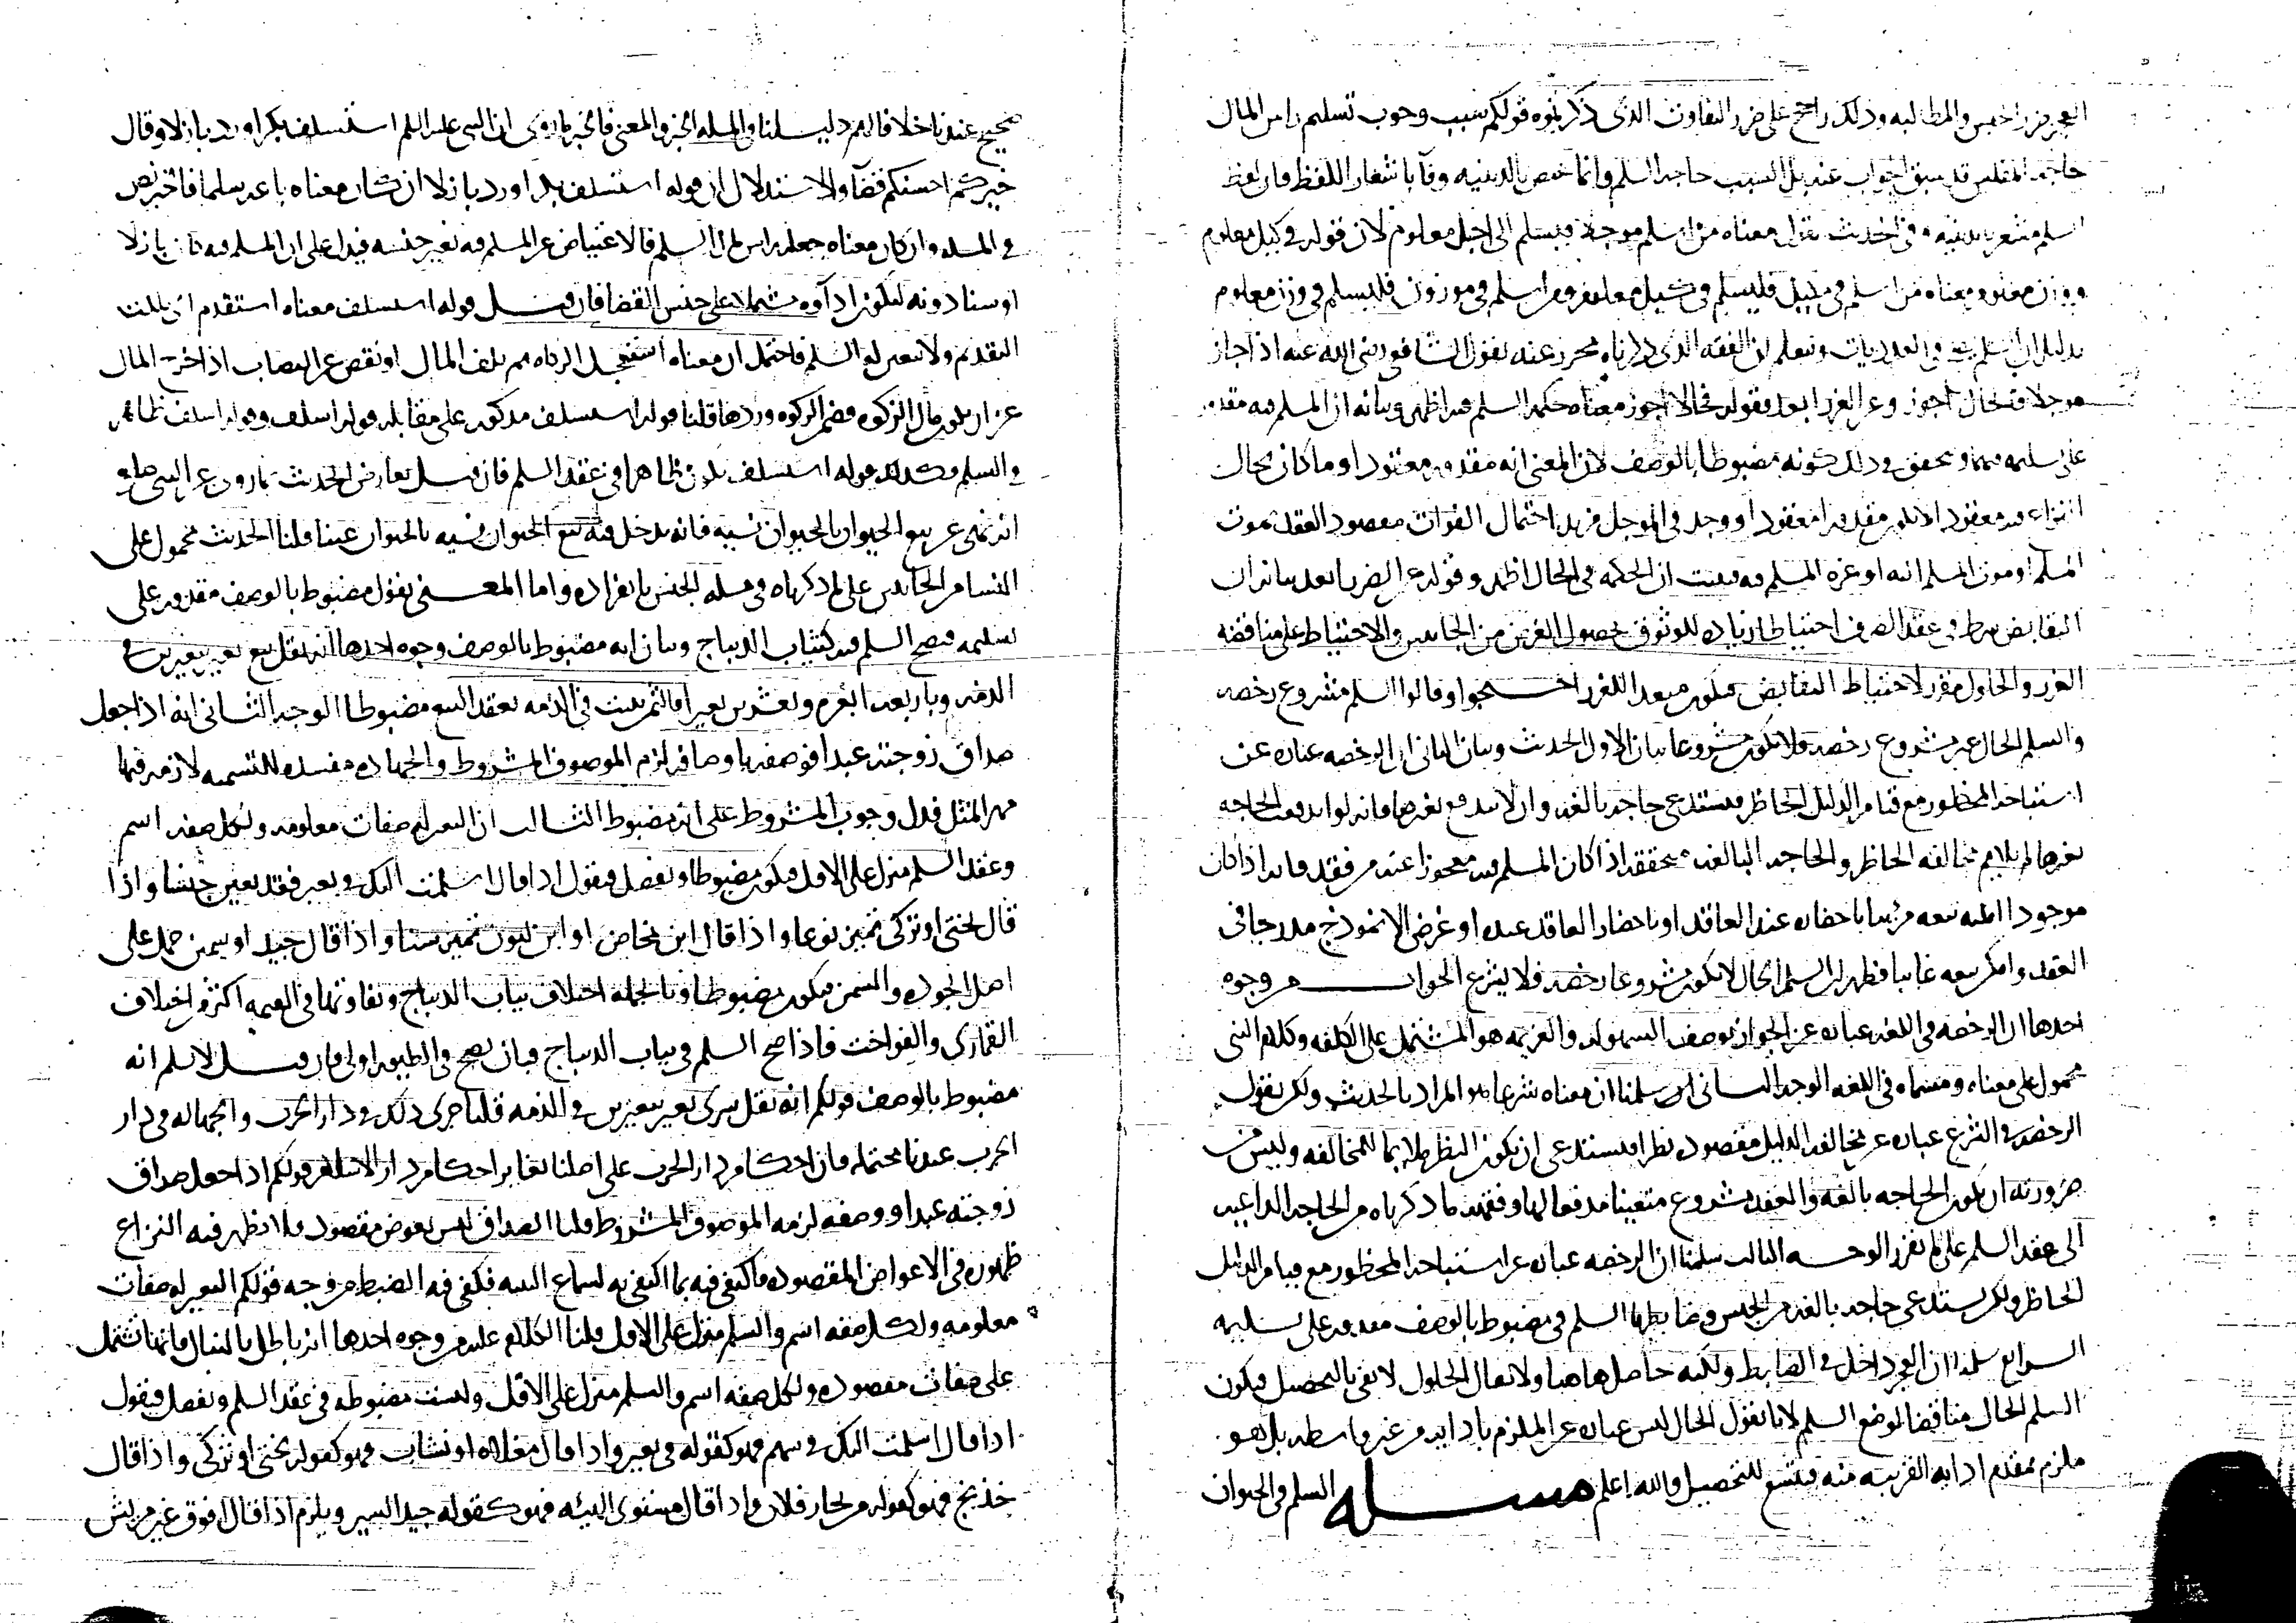 العجز ضرر الحبس والمطالبه وذلك راجح على ضرر التفاوت الذى ذكرتموه قولكم سبب وجوب تسليم راس المال
حاجه المفلس قد سبق الجواب عنه بل السبب حاجه السلم وانما خص بالدينيه وفآ باشعار اللفظ فان لفظ
السلم مشعر بالدينيه وفى الحديث نقول معناه من اسلم موجلا فليسلم الى اجل معلوم لان قوله فى كيل معلوم
ووزن معلوم معناه من اسلم فى مكيل فليسلم فى كيل معلوم ومن اسلم فى موزون فليسلم فى وزن معلوم
بدليل ان السلم يصح فى العدديات ونعلم ان الفقه الذى ذكرناه محرر عنه بقول الشافعى رضى الله عنه اذا جاز
موجلا فالحال اجوز وعن الغرر ابعد فقوله فحالا اجوز معناه حكمه السلم فيه اظهر وبيانه ان المسلم فيه مقدور
على تسليمه فيهما وتحقق ذلك كونه مضبوطا بالوصف لان المعنى انه مقدور معقود او ما كان بحال
المسلم او موت المسلم اليه او عزه المسلم فيه فبينت ان الحكمه فى الحال اظهر وقوله عن الضرر ابعد بيانه ان
التقابض شرط فى عقد الصرف احتياطا لزياده للوثوق لحصول الغرضين من الجانبين والاحتياط على مناقضه
الغرر والحلول مقرر لاحتياط التقابض فيكون مبعدا للغرر احتجوا وقالوا السلم مشروع رخصه
والسلم الحال غير مشروع رخصه فلا يكون مشروعا بيان الاول الحديث وبيان الثانى ان الرخصه عباره عن
استباحه المحظور مع قيام الدليل الحاظر فيستدعى حاجه بالغه وان لا تندفع بغيرها فانه لو اندفعت الحاجه
بغيرها لم يلايم مخالفه الحاظر والحاجه البالغه متحققه اذا كان المسلم فيه معجوزا عنه مر فقد فاما اذا كان
موجودا امكنه بيعه مرئيا باحضاره عند العاقد او باحضار العاقد عنده او عرض الانموذج مدرجا فى
العقد وامكن بيعه غايبا فظهر ان السلم الحال لا يكون مشروعا رخصه فلا يشرع الجواب من وجوه
احدها ان الرخصه فى اللغه عباره عن الجواز بوصف السهوله والعزيمه هو المشتمل على الكلفه وكلام النبى
محمول على معناه ومسماه فى اللغه الوجه الثانى ان سلمنا ان معناه شرعا هو المراد بالحديث ولكن نقول
الرخصه فى الشرع عباره عن مخالفه الدليل مقصوده نظرا فيستدعى ان يكون النظر ملايما للمخالفه وليس من
ضرورته ان تكون الحاجه بالغه والعقد مشروع متعينا مدفعا لها وفقهه ما ذكرناه من الحاجه الداعيه
الى عقد السلم على ما تقرر الوجه الثالث سلمنا ان الرخصه عباره عن استباحه المحظور مع قيام الدليل
الحاظر ولكن يستدعى حاجه بالغه من الجنس وضابطها السلم فى مضبوط بالوصف مقدور على تسليمه
الرابع سلمنا ان العجز داخل فى الضابط ولكنه حاصل هاهنا ولا يقال الحلول لا يفى بالتحصيل فيكون
السلم الحال مناقضا لوضع السلم لانا نقول الحال ليس عباره عن الملزم بادائه من غير واسطه بل هو
ملزم بمقدم ادايه القريبه منه فيتسع للتحصيل والله اعلم مسله السلم فى الحيوان
صحيح عندنا خلافا لهم دليلنا فى المسله الخبر والمعنى فالخبر ما روى ان النبى عليه السلم استسلف بكرا ورد بازلا وقال
خيركم احسنكم قضآ والاستدلال ان قوله استسلف بكرا ورد بازلا ان كان معناه باعه سلما فالخبر نص
فى المسله وان كان معناه جعله راس مال السلم فالاعتياض عن المسلم فيه بغير جنسه فيدل على ان المسلم فيه كان بازلا
او سنا دونه ليكون اداوه مشتملا على جنس القضا فان قيل قوله استسلف معناه استقدم
التقديم ولا تعين له السلم فاحتمل ان معناه استعجل الزكاه ثم تلف المال او نقص عن النصاب اذا خرج المال
عن ان يكون مال الزكوه فضمن الزكوه وردها قلنا قوله استسلف مذكور على مقابله قوله اسلف وقوله اسلف ظاهر
فى السلم وكذلك قوله استسلف يكون ظاهرا فى عقد السلم فان قيل يعارض الحديث بما روى عن النبى صلع
انه نهى عن بيع الحيوان بالحيوان نسيه فانه يدخل فيه بيع الحيوان نسيه بالحيوان عينا قلنا الحديث محمول على
النسا من الجانبين على ما ذكرناه فى مسله الجنس بانفراده واما المعنى نقول مضبوط بالوصف مقدور على
تسليمه فيصح السلم فيه كثياب الديباج وبيان انه مضبوط بالوصف وجوه احدها انه نقل بيع بعير ببعيرين فى
الذمه وباربعه ابعره وبعشرين بعيرا فالثمن يثبت فى الذمه بعقد البيع مضبوطا الوجه الثانى انه اذا جعل
صداق زوجته عبدا فوصفه باوصافه لزم الموصوف المشروط والجهاله مفسده للتسميه لازمه فيها
مهر المثل فدل وجوب المشروط على انه مضبوط الثالث ان البعير له صفات معلومه ولكل صفه اسم
وعقد السلم منزل على الاقل فيكون مضبوطا ونفصل فنقول اذا قال اسلمت اليك فى بعير فقد تعين جنسا واذا
قال بختى او تركى تميز نوعا واذا قال ابن مخاض او ابن لبون تميز سنا واذا قال جيد او سمين حمل على
اصل الجوده والسمن فيكون مضبوطا وبالجمله اختلاف ثياب الديباج وتفاوتها فى القيمه اكثر من اختلاف
القمارى والفواخت فاذا صح السلم فى ثياب الديباج فبان يصح فى الطيور اولى فان قيل لا نسلم انه
مضبوط بالوصف قولكم انه نقل شرى بعير ببعيرين فى الذمه قلنا جرى ذلك فى دار الحرب والجهاله فى دار
الحرب عندنا محتمله فان احكام دار الحرب على اصلنا تغاير احكام دار الاسلام قولكم اذا جعل صداق
زوجته عبدا ووصفه لزمه الموصوف المشروط قلنا الصداق ليس بعوض مقصود فلا يظهر فيه النزاع
ظهوره فى الاعواض المقصوده فاكتفى فيه بما اكتفى به لسماع البينه فكفى فيه الضبط من وجه قولكم البعير له صفات
معلومه ولكل صفه اسم والسلم منزل على الاقل قلنا الكلام عليه من وجوه احدها انه باطل بالنبال فانها تشتمل
على صفات مقصوده ولكل صفه اسم والسلم منزل على الاقل وليست مضبوطه فى عقد السلم ونفصل فنقول
اذا قال اسلمت اليك فى سهم فهو كقوله فى بعير واذا قال او نشاب فهو كقوله بختى او تركى واذا قال
خذنج فهو كقوله من نجار فلان واذا قال مستوى البنيه فهو كقوله جيد السير ويلزم اذا قال افوق غير مريش